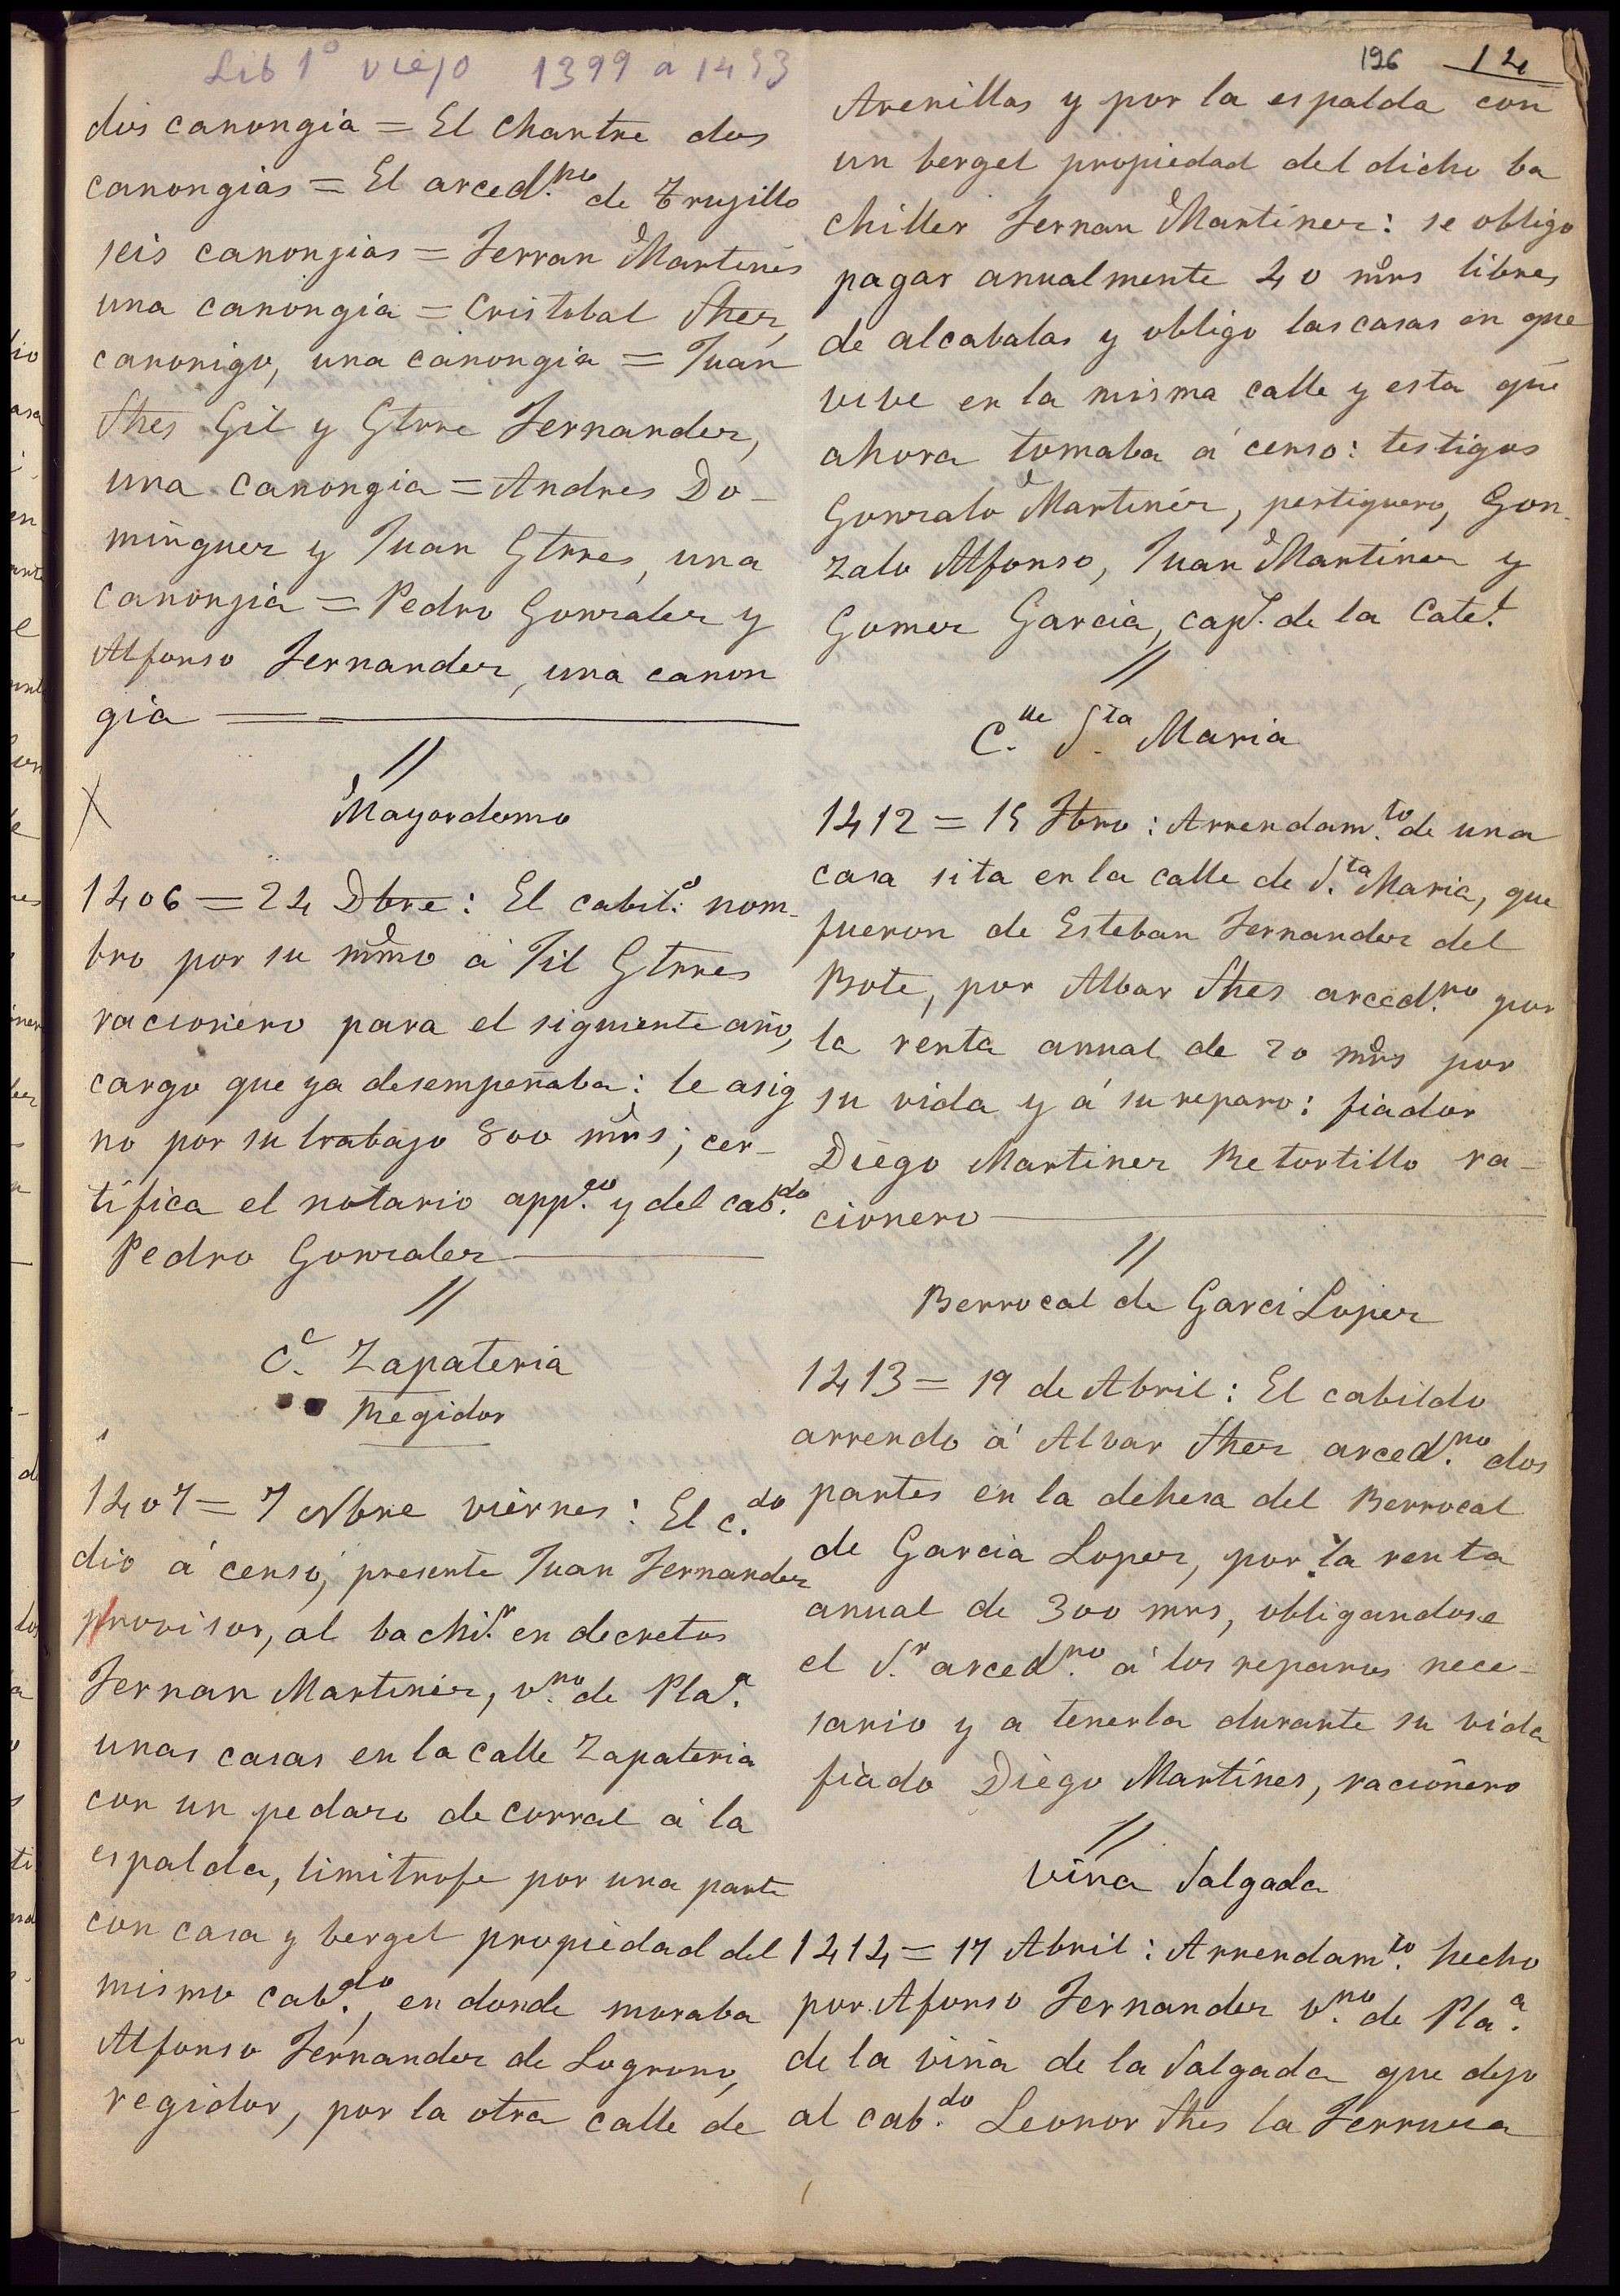 Lib 1º viejo 1399 a 1453
dos canongia = El chantre dos
canongias = El arced.no de Trujillo
seis canongias = Ferran Martines
una canongia = Cristobal Shez,
canonigo, una canongia = Juan
Shes Gil y Gtrre Fernandez,
una canongia = Andres Do-
minguez y Juan Gtrres, una
canongia = Pedro Gonzalez y
Alfonso Fernandez, una canon
gia
//
X
Mayordomo
1406 = 24 Dbre: El cabil.o nom-
bro por su mmo a Jil Gtrres
racionero para el siguiente año,
cargo que ya desempeñaba: le asig
no por su trabajo 800 mrs; cer-
tifica el notario app.co y del cab.do
Pedro Gonzalez
//
C.e Zapateria
Regidor
1407 = 7 Nbre viernes: El c.do
dio á censo, presente Juan Fernandez
provisor, al bachi.r en decretos
Fernan Martinez, v.no de Pla.a
unas casas en la calle Zapateria
con un pedazo de corral á la
espalda, limitrofe por una parte
con casa y bergel propiedad del
mismo cab.do, en donde moraba
Alfonso Fernandez de Logrono,
regidor, por la otra calle de
196 14
Arenillas y por la espalda con
un bergel propiedad del dicho ba
chiller Fernan Martinez: se obligo
pagar anualmente 40 mrs libres
de alcabalas y obligo las casas en que
vive en la misma calle y esta que
ahora tomaba á censo: testigos
Gonzalo Martinez, pertiguero, Gon-
zalo Alfonso, Juan Martinez y
Gomez Garcia, cap.l de la Cate.l
//
C.lle S.ta Maria
1412 = 15 Fbro: Arrendam.to de una
casa sita en la calle de S.ta Maria, que
fueron de Esteban Fernandez del
Bote, por Albar Shes arced.no por
la renta anual de 20 mrs por
su vida y á su reparo: fiador
Diego Martinez Retortillo ra-
cionero
//
Berrocal de Garci Lopez
1413 = 19 de Abril: El cabildo
arrendo á Alvar Shez arced.no dos
partes en la dehesa del Berrocal
de Garcia Lopez, por la renta
anual de 300 mrs, obligandose
el S.r arced.no á los reparos nece-
sario y a tenerla durante su vida
fiado Diego Martines, racionero
//
Viña Salgada
1414 = 17 Abril: Arrendam.to hecho
por Afonso Fernandez v.no de Pla.a
de la viña de la Salgada que dejo
al cab.do Leonor Shes la Ferruza